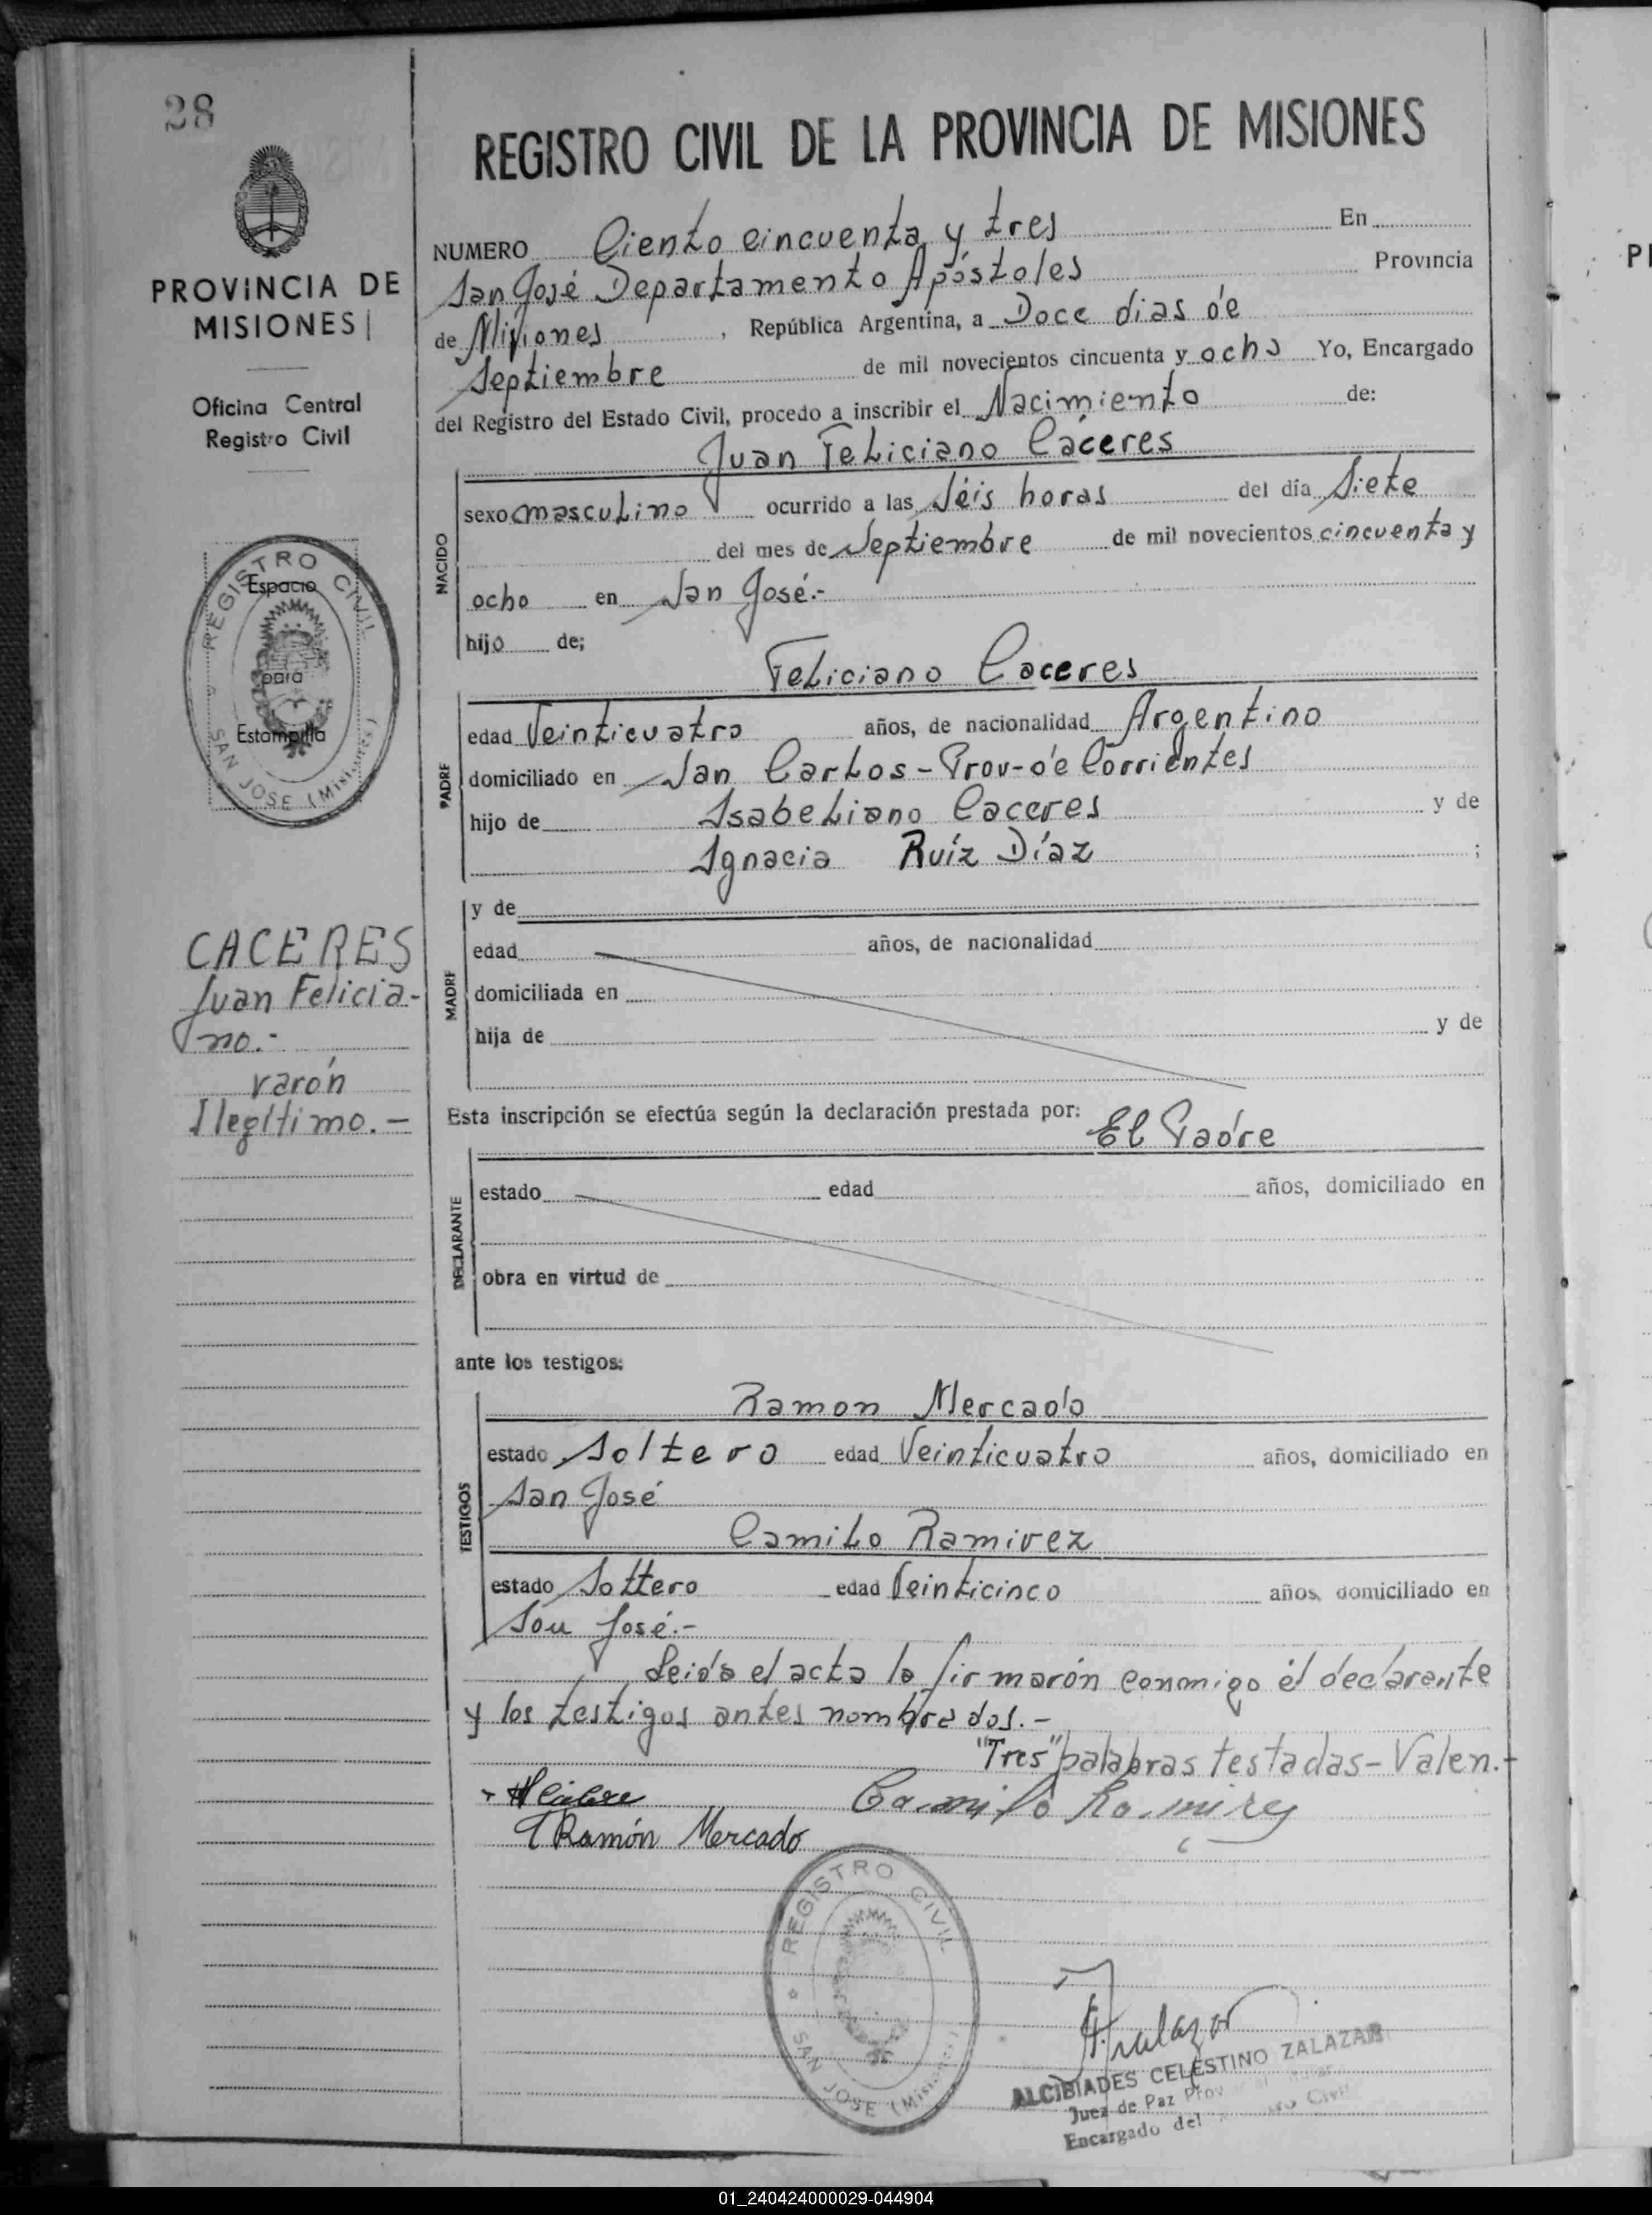 28
PROVINCIA DE
MISIONES
Oficina Central
Registro Civil
REGISTRO CIVIL
Espacio
para
Estampilla
SAN JOSE (Misiones)
CACERES
Juan Felicia-
no.-
varón
Ilegítimo.-
REGISTRO CIVIL DE LA PROVINCIA DE MISIONES
NUMERO Ciento cincuenta y tres En
San José Departamento Apóstoles Provincia
de Misiones, República Argentina, a Doce dias de
Septiembre de mil novecientos cincuenta y ocho Yo, Encargado
del Registro del Estado Civil, procedo a inscribir el Nacimiento de:
Juan Feliciano Cáceres
NACIDO
sexo masculino ocurrido a las Séis horas del día Siete
del mes de Septiembre de mil novecientos cincuenta y
ocho en San José.-
hijo de;
Feliciano Caceres
PADRE
edad Veinticuatro años, de nacionalidad Argentino
domiciliado en San Carlos-Prov-de Corrientes
hijo de Isabeliano Caceres y de
Ignacia Ruíz Díaz ;
MADRE
y de
edad años, de nacionalidad
domiciliada en
hija de y de
Esta inscripción se efectúa según la declaración prestada por: El Padre
DECLARANTE
estado edad años, domiciliado en
obra en virtud de
ante los testigos:
TESTIGOS
Ramon Mercado
estado Soltero edad Veinticuatro años, domiciliado en
San José
Camilo Ramirez
estado Soltero edad Veinticinco años, domiciliado en
San José.-
Leida el acta la firmarón conmigo el declarante
y los testigos antes nombrados.-
"Tres" palabras testadas-Valen.-
Camilo Ramirez
Ramón Mercado
REGISTRO CIVIL
SAN JOSE (Misiones)
ALCIBIADES CELESTINO ZALAZAR
Juez de Paz
Encargado del Civil
01_240424000029-044904